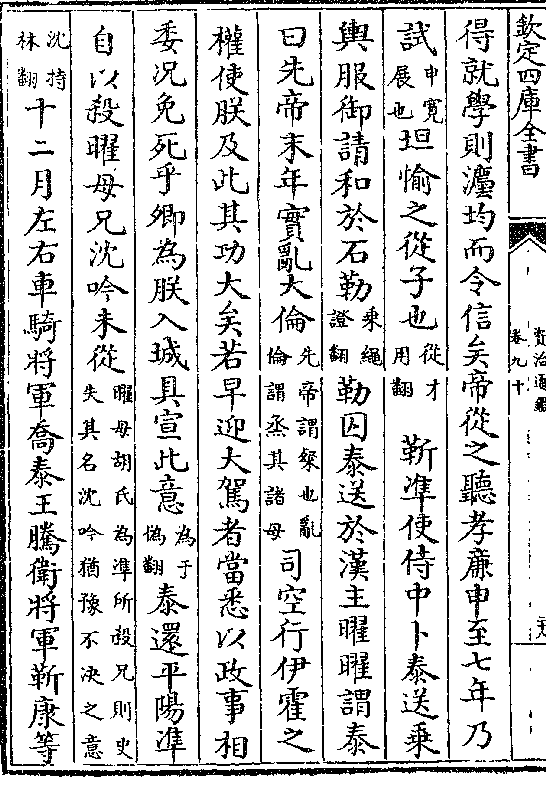 欽定四庫全書
資治通鑑
卷九十
得就學則灋均而令信矣帝從之聽孝廉申至七年乃
試申寛展也坦愉之從子也從才用翻 靳凖使侍中卜泰送乗
輿服御請和於石勒乗繩證翻勒囚泰送於漢主曜曜謂泰
曰先帝末年實亂大倫先帝謂粲也亂倫謂烝其諸母司空行伊霍之
權使朕及此其功大矣若早迎大駕者當悉以政事相
委况免死乎卿為朕入城具宣此意為于偽翻泰還平陽凖
自以殺曜母兄沈吟未從曜母胡氏為凖所殺兄則史失其名沈吟猶豫不決之意
沈持林翻十二月左右車騎將軍喬泰王騰衛將軍靳康等